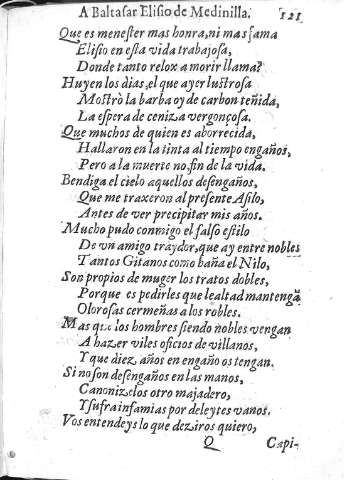 A Baltaſar Eliſio de Medinilla. 121
Que es meneſter mas honra, ni mas fama
Eliſio en eſta vida trabajoſa,
Donde tanto relox a morir llama?
Huyen los dias, el que ayer luſtroſa
Moſtrò la barba oy de carbon teñida,
La eſpera de ceniza vergonçoſa.
Que muchos de quien es aborrecida,
Hallaron en la tinta al tiempo engaños,
Pero a la muerte no, fin de la vida.
Bendiga el cielo aquellos deſengaños,
Que me traxeron al preſente Aſilo,
Antes de ver precipitar mis años.
Mucho pudo conmigo el falſo eſtilo
De vn amigo traydor, que ay entre nobles
Tantos Gitanos como baña el Nilo,
Son propios de muger los tratos dobles,
Porque es pedirles que lealtad mantengã
Oloroſas cermeñas a los robles.
Mas que los hombres ſiendo nobles vengan
A hazer viles oficios de villanos,
Y que diez años en engaño os tengan.
Si no ſon deſengaños en las manos,
Canonizelos otro majadero,
Y ſufra infamias por deleytes vanos.
Vos entendeys lo que deziros quiero,
Q Capi-